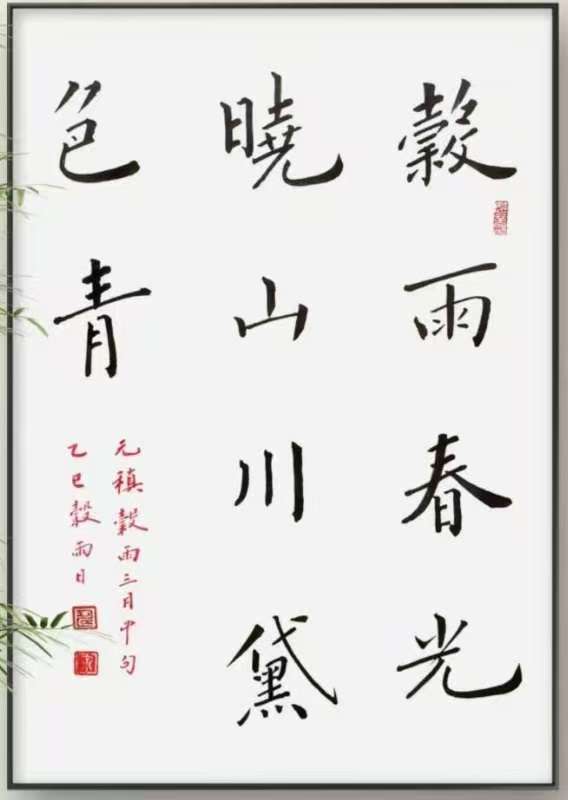 穀雨春光
曉山川黛
色青
元稹穀雨三月中句
乙巳穀雨日